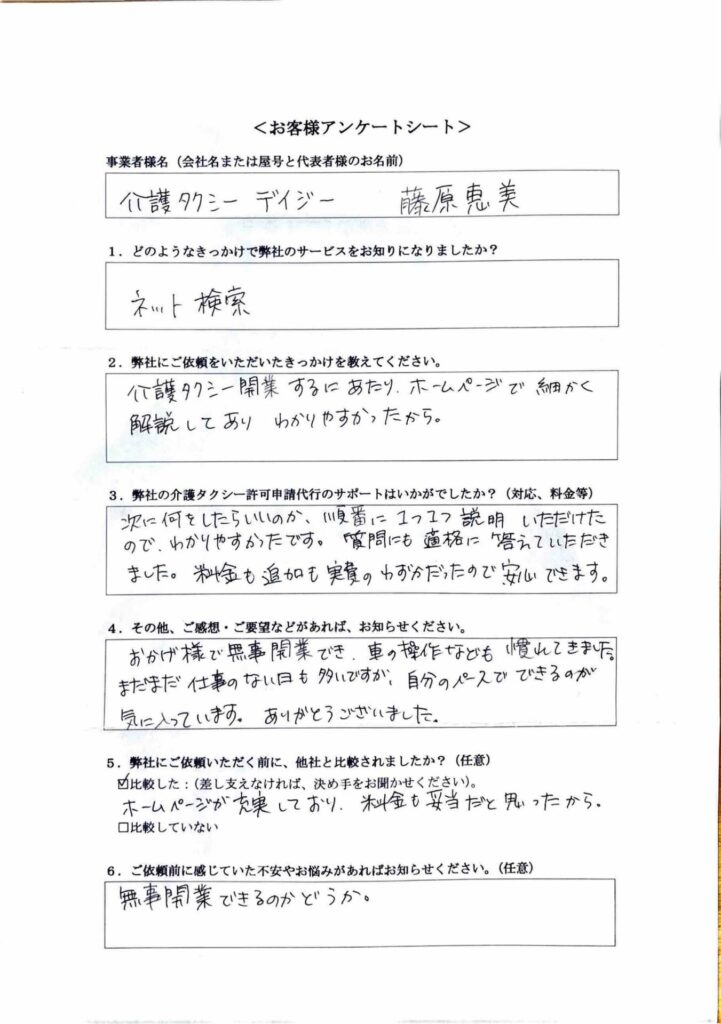 ＜お客様アンケートシート＞
事業者様名（会社名または屋号と代表者様のお名前）
介護タクシー デイジー　藤原恵美
１．どのようなきっかけで弊社のサービスをお知りになりましたか？
ネット検索
２．弊社にご依頼をいただいたきっかけを教えてください。
介護タクシー開業するにあたり、ホームページで細かく
解説してあり　わかりやすかったから。
３．弊社の介護タクシー許可申請代行のサポートはいかがでしたか？（対応、料金等）
次に何をしたらいいのか、順番に１つ１つ説明いただけた
ので、わかりやすかったです。質問にも適格に答えていただき
ました。料金も追加も実費のわずかだったので安心できます。
４．その他、ご感想・ご要望などがあれば、お知らせください。
おかげ様で無事開業でき、車の操作なども慣れてきました。
まだまだ仕事のない日も多いですが、自分のペースでできるのが
気に入っています。ありがとうございました。
５．弊社にご依頼いただく前に、他社と比較されましたか？（任意）
☑比較した：（差し支えなければ、決め手をお聞かせください）。
ホームページが充実しており、料金も妥当だと思ったから。
□比較していない
６．ご依頼前に感じていた不安やお悩みがあればお知らせください。（任意）
無事開業できるのかどうか。